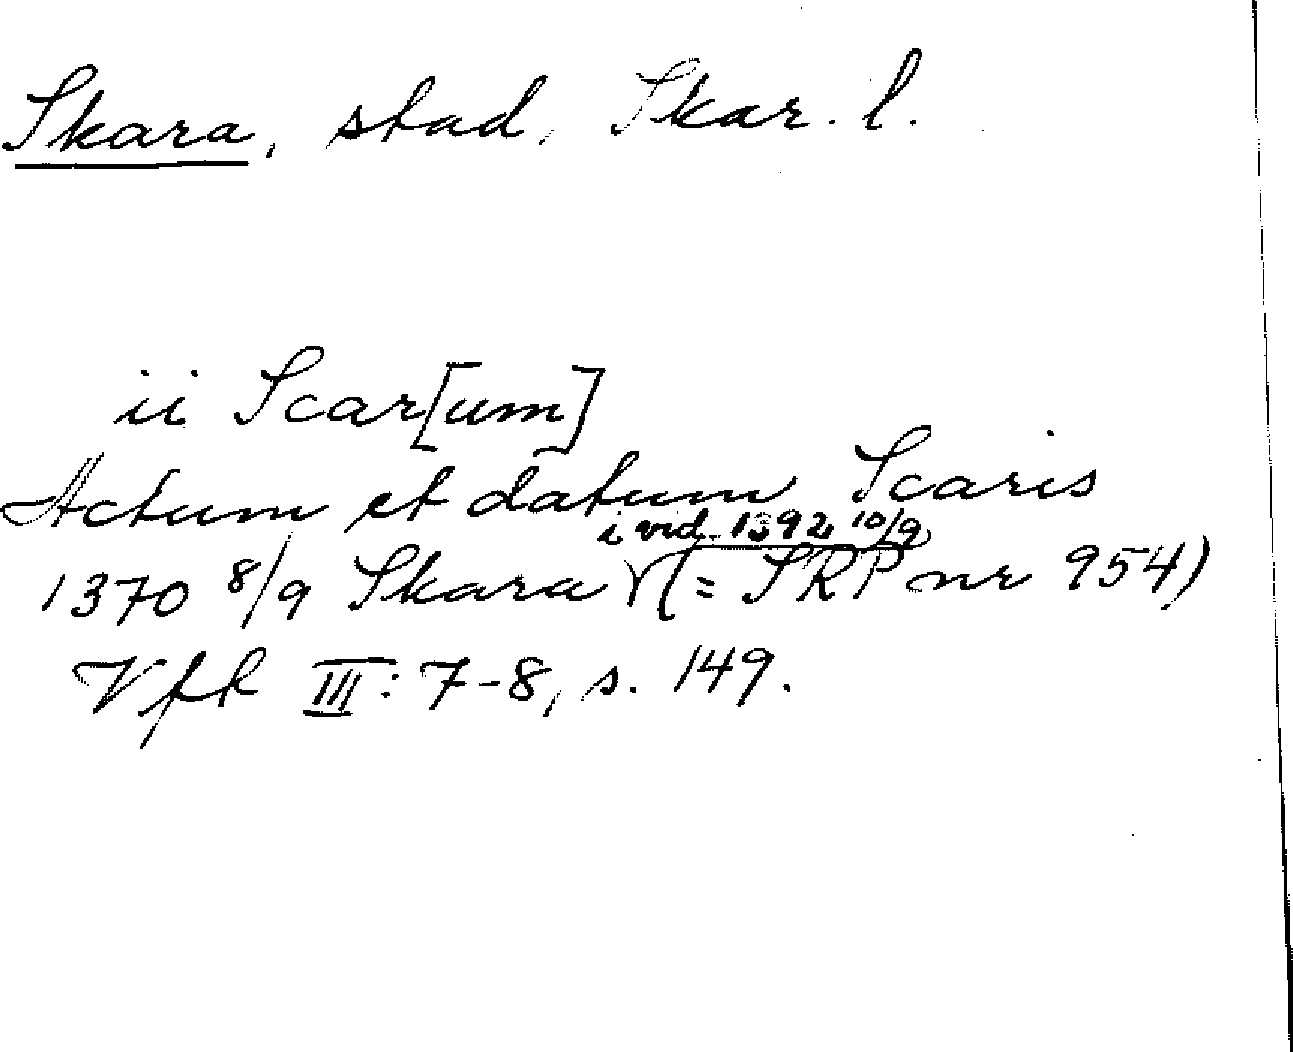 Skara, stad, Skar. l.
ii Scar[um]
Actum et datum Scaris
i vid. 1392 10/9
1370 8/9 Skara (= SRP nr 954)
Vfk III: 7-8, s. 149.